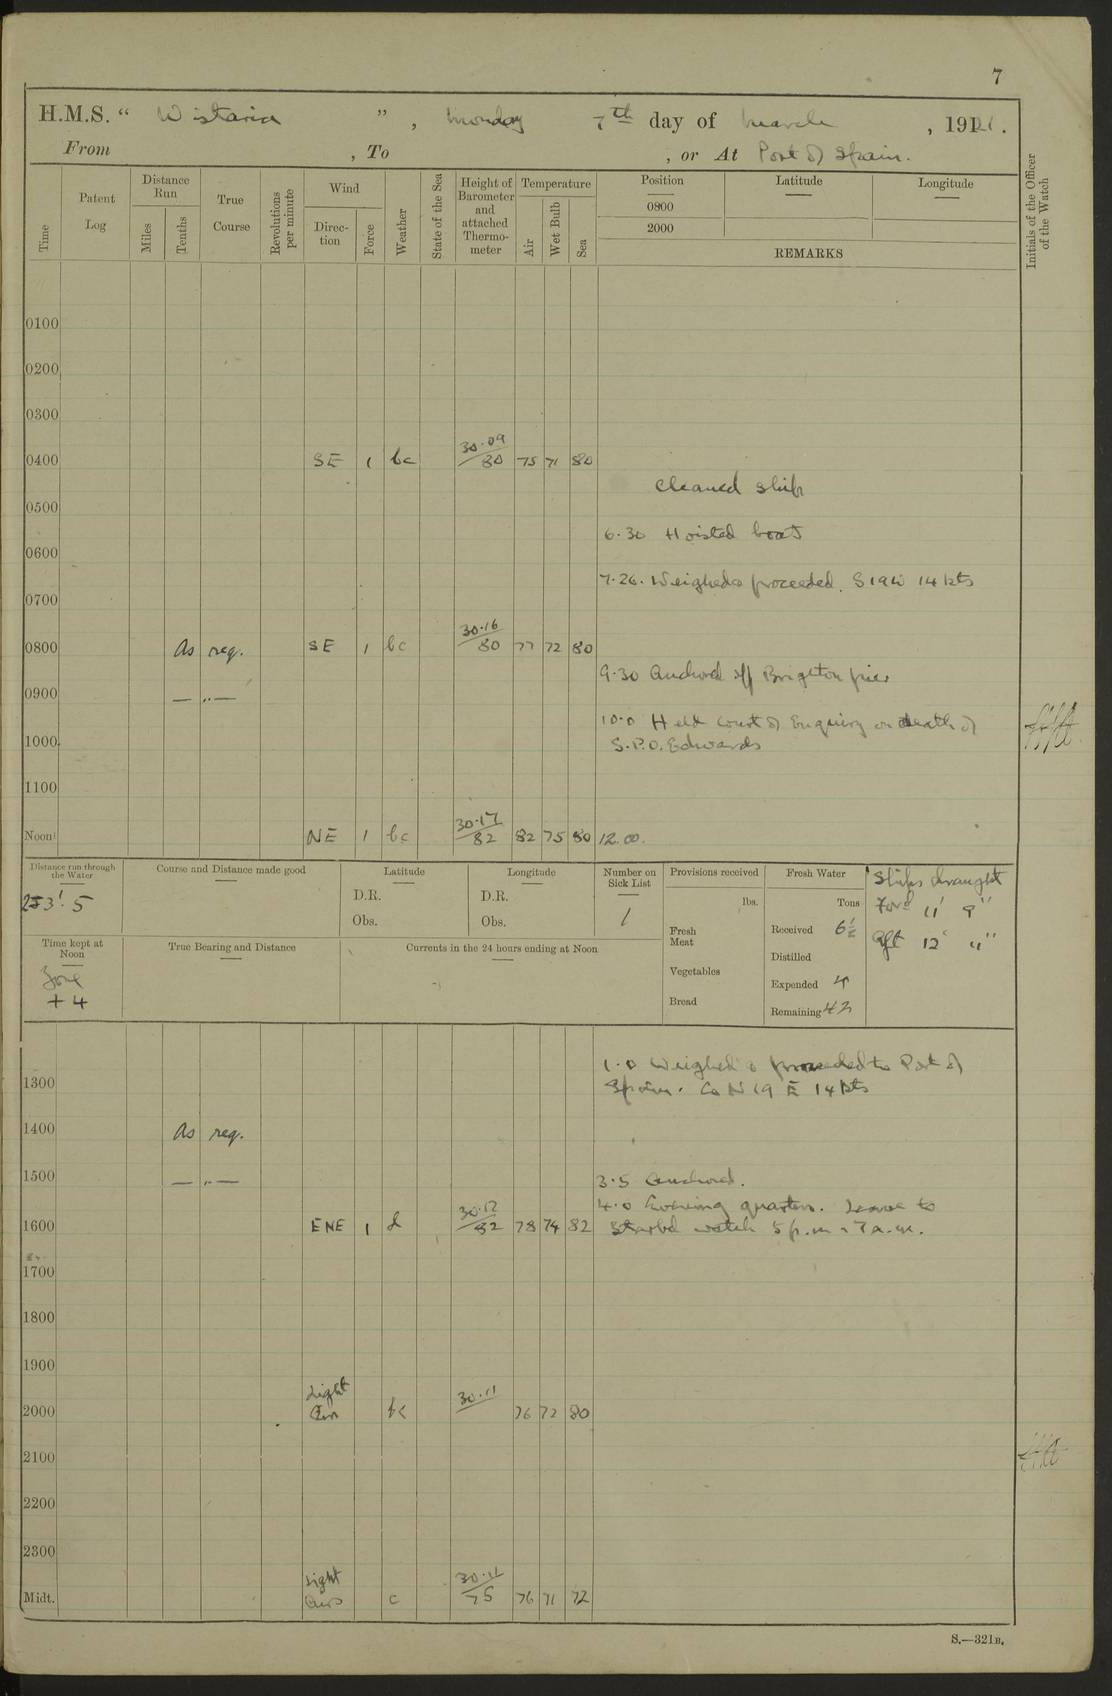 7
H.M.S. “ Wistaria ” , Monday 7th day of March , 1921.
From , To , or At Port of Spain.
Time
Patent Log
Distance Run
Miles
Tenths
True Course
Revolutions per minute
Wind
Direction
Force
Weather
State of the Sea
Height of Barometer and attached Thermometer
Temperature
Air
Wet Bulb
Sea
Position Latitude Longitude
0800
2000
REMARKS
Initials of the Officer of the Watch
0100
0200
0300
0400 SE 1 bc 30.09/80 75 71 80
Cleaned ship
0500
6.30 Hoisted boats
0600
7.26. Weighed & proceeded. S19W 14 kts
0700
0800 As req. SE 1 bc 30.16/80 77 72 80
9.30 Anchored off Brighton pier
0900 — „ —
10.0 Held Court of Enquiry on death of
1000
S.P.O. Edwards
1100
Noon NE 1 bc 30.17/82 82 75 80 12.00.
Distance run through the Water
Course and Distance made good
Latitude
D.R.
Obs.
Longitude
D.R.
Obs.
Number on Sick List
1
Provisions received
lbs.
Fresh Meat
Vegetables
Bread
Fresh Water
Tons
Received 6½
Distilled
Expended 4
Remaining 42
Ships draught
Ford 11' 9"
Aft 12'
Time kept at Noon
Zone
+ 4
True Bearing and Distance
Currents in the 24 hours ending at Noon
1.0 Weighed & proceeded to Port of
1300
Spain. Co N19E 14 kts
1400 As req.
1500 — „ —
3.5 Anchored.
4.0 Evening quarters. Leave to
1600 ENE 1 30.12/82 78 74 82 Starbd watch 5 p.m - 7 a.m.
1700
1800
1900
2000 Light Airs bc 30.11 76 72 80
2100
2200
2300
Midt. Light Airs c 30.11/75 76 71 72
S.—321B.